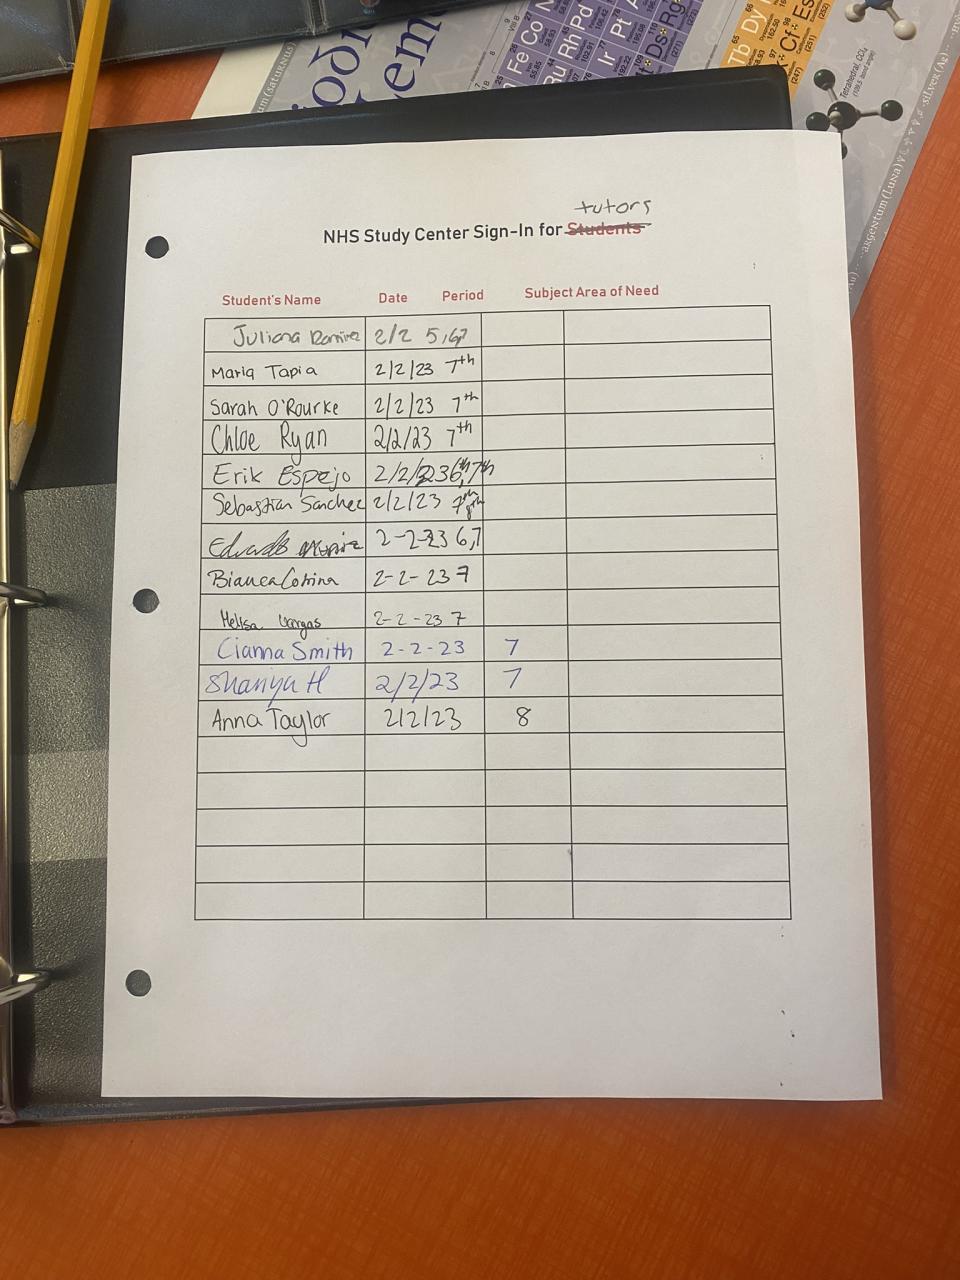 tutors
NHS Study Center Sign-In for Students
Student's Name Date Period Subject Area of Need
Juliana Ramirez 2/2 5,6,7
Maria Tapia 2/2/23 7th
Sarah O'Rourke 2/2/23 7th
Chloe Ryan 2/2/23 7th
Erik Espejo 2/2/23 6th,7th
Sebastian Sanchez 2/2/23 7th 8th
2-2-23 6,7
Bianca 2-2-23 7
Melisa Vargas 2-2-23 7
Cianna Smith 2-2-23 7
Shaniya H 2/2/23 7
Anna Taylor 2/2/23 8
Fe Co N
Ru Rn Pd
Ir Pt A
Ds Rg
Tb Dy
Cf Es
Tetrahedral, CCl4
(109.5 bond angle)
ARGENTUM (LUNA)
SILVER (Ag)